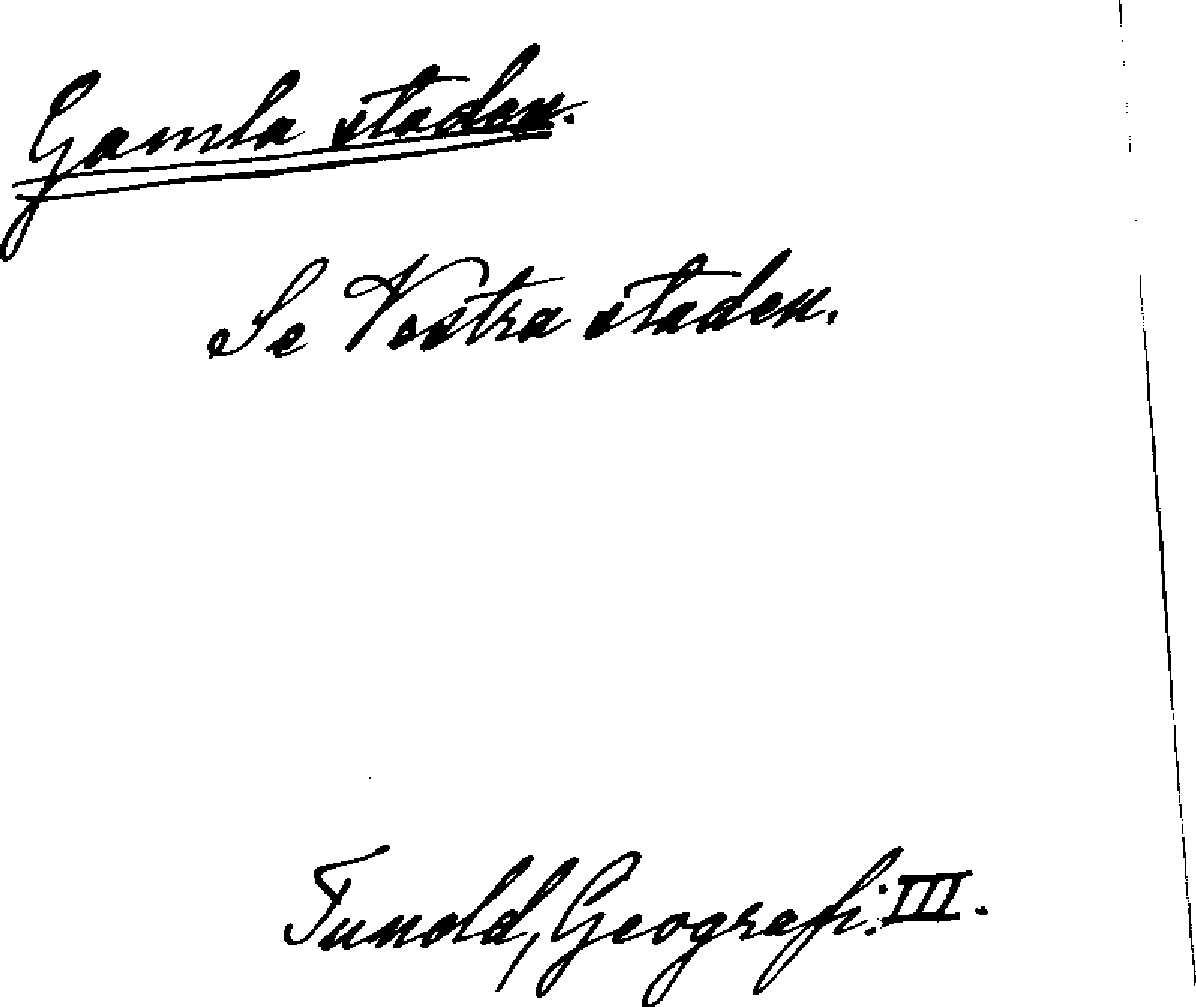 Gamla staden.
Se Vestra staden.
Tunold, Geografi. III.